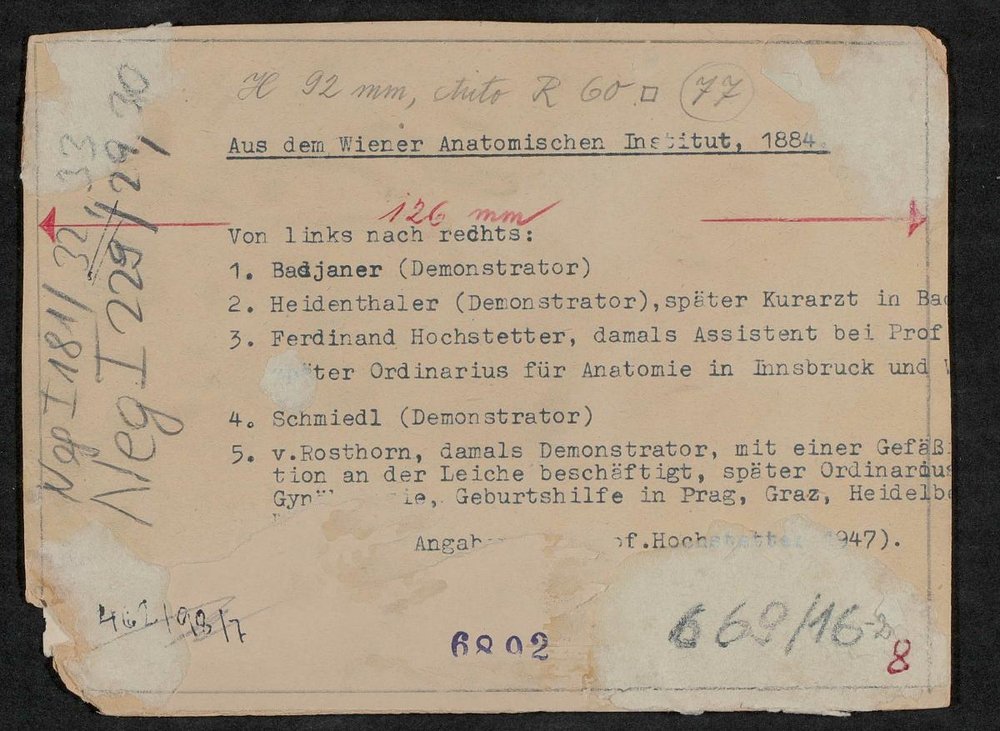 H 92 mm, Auto R 60 □ 77
Aus dem Wiener Anatomischen Institut, 1884.
126 mm
Von links nach rechts:
1. Badjaner (Demonstrator)
2. Heidenthaler (Demonstrator), später Kurarzt in
3. Ferdinand Hochstetter, damals Assistent bei Prof
Ordinarius für Anatomie in Innsbruck und
4. Schmiedl (Demonstrator)
5. v.Rosthorn, damals Demonstrator, mit einer
tion an der Leiche beschäftigt, später Ordinarius
Geburtshilfe in Prag, Graz,
1947).
Neg I 181/32, 33
Neg I 229/29, 30
462/93/7
6892
669/16
8